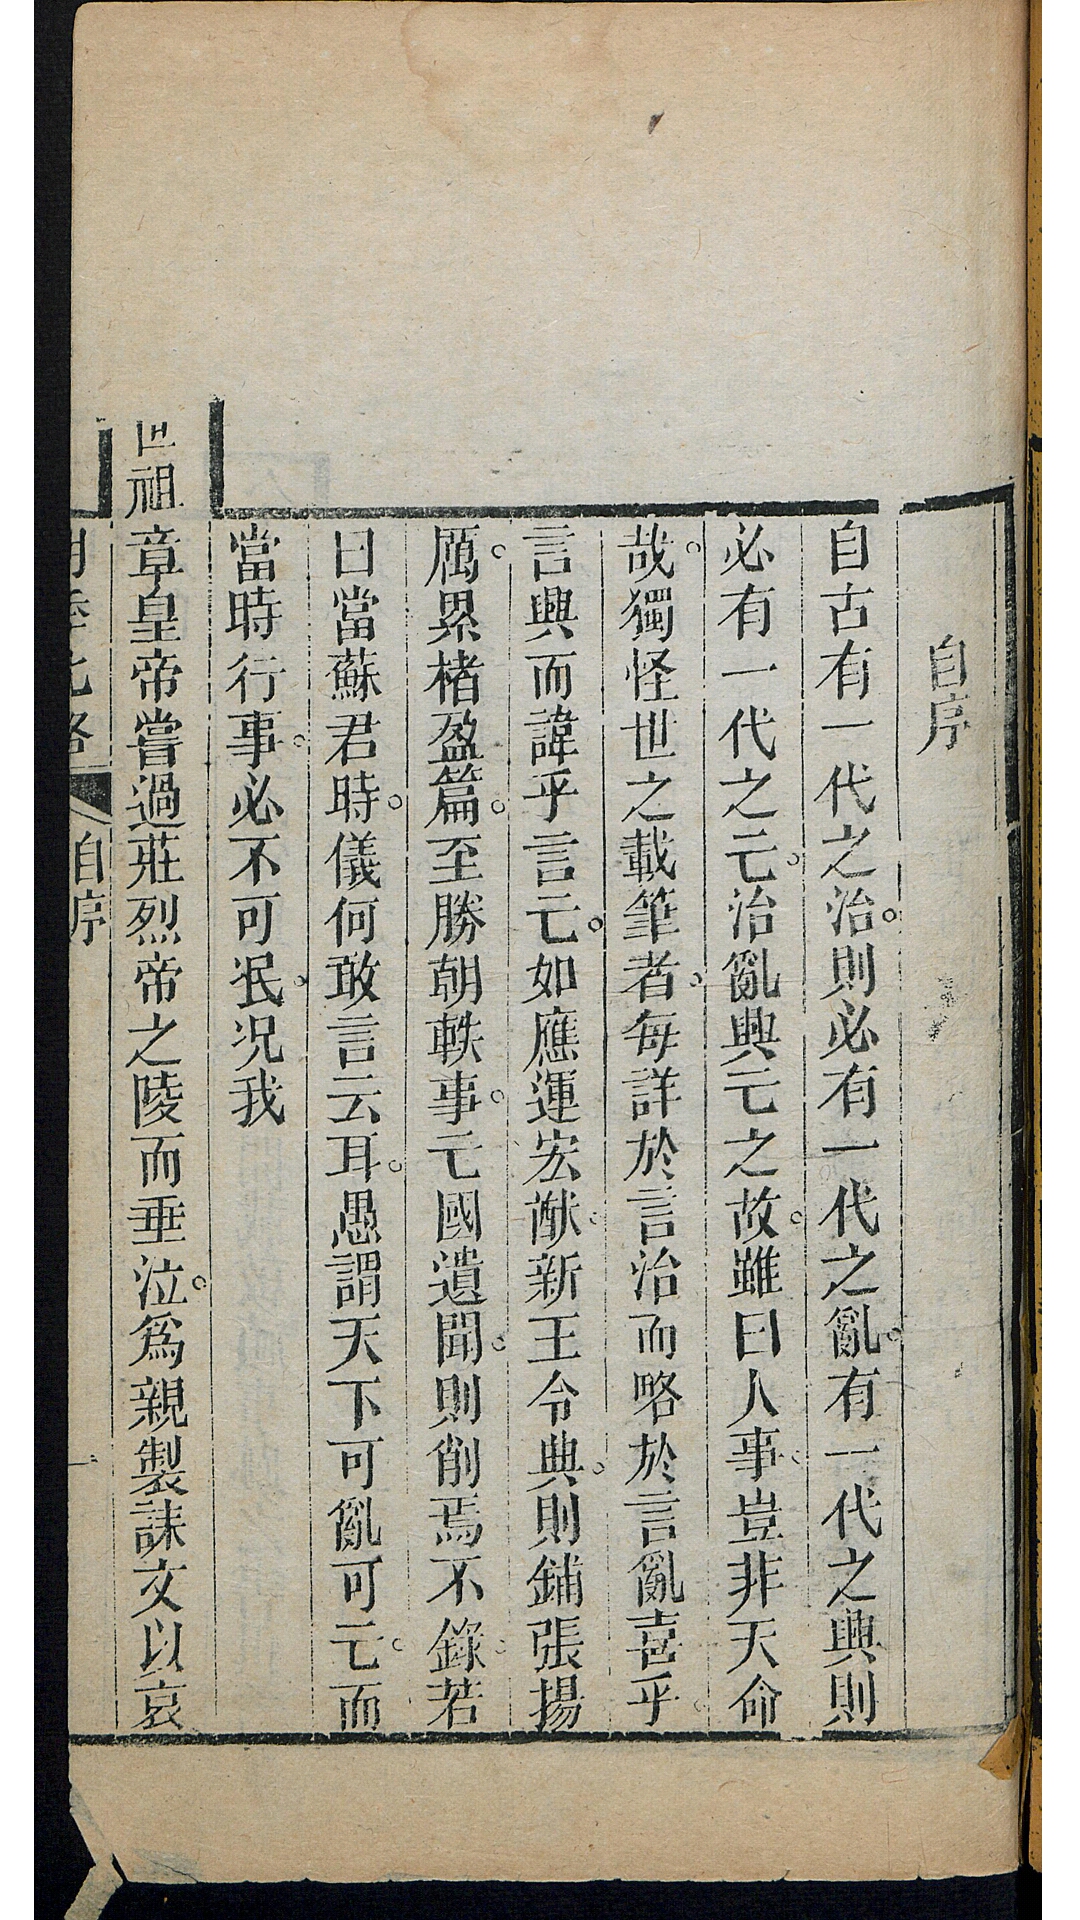 自序
自古有一代之治則必有一代之亂有一代之興則
必有一代之亡治亂興亡之故雖曰人事豈非天命
哉獨怪世之載筆者每詳於言治而略於言亂喜乎
言興而諱乎言亡如應運宏猷新王令典則鋪張揚
厲累楮盈篇至勝朝軼事亡國遺聞則削焉不錄若
曰當蘇君時儀何敢言云耳愚謂天下可亂可亡而
當時行事必不可泯况我
世祖章皇帝嘗過莊烈帝之陵而垂泣爲親製誄文以哀
明季北略 自序 一